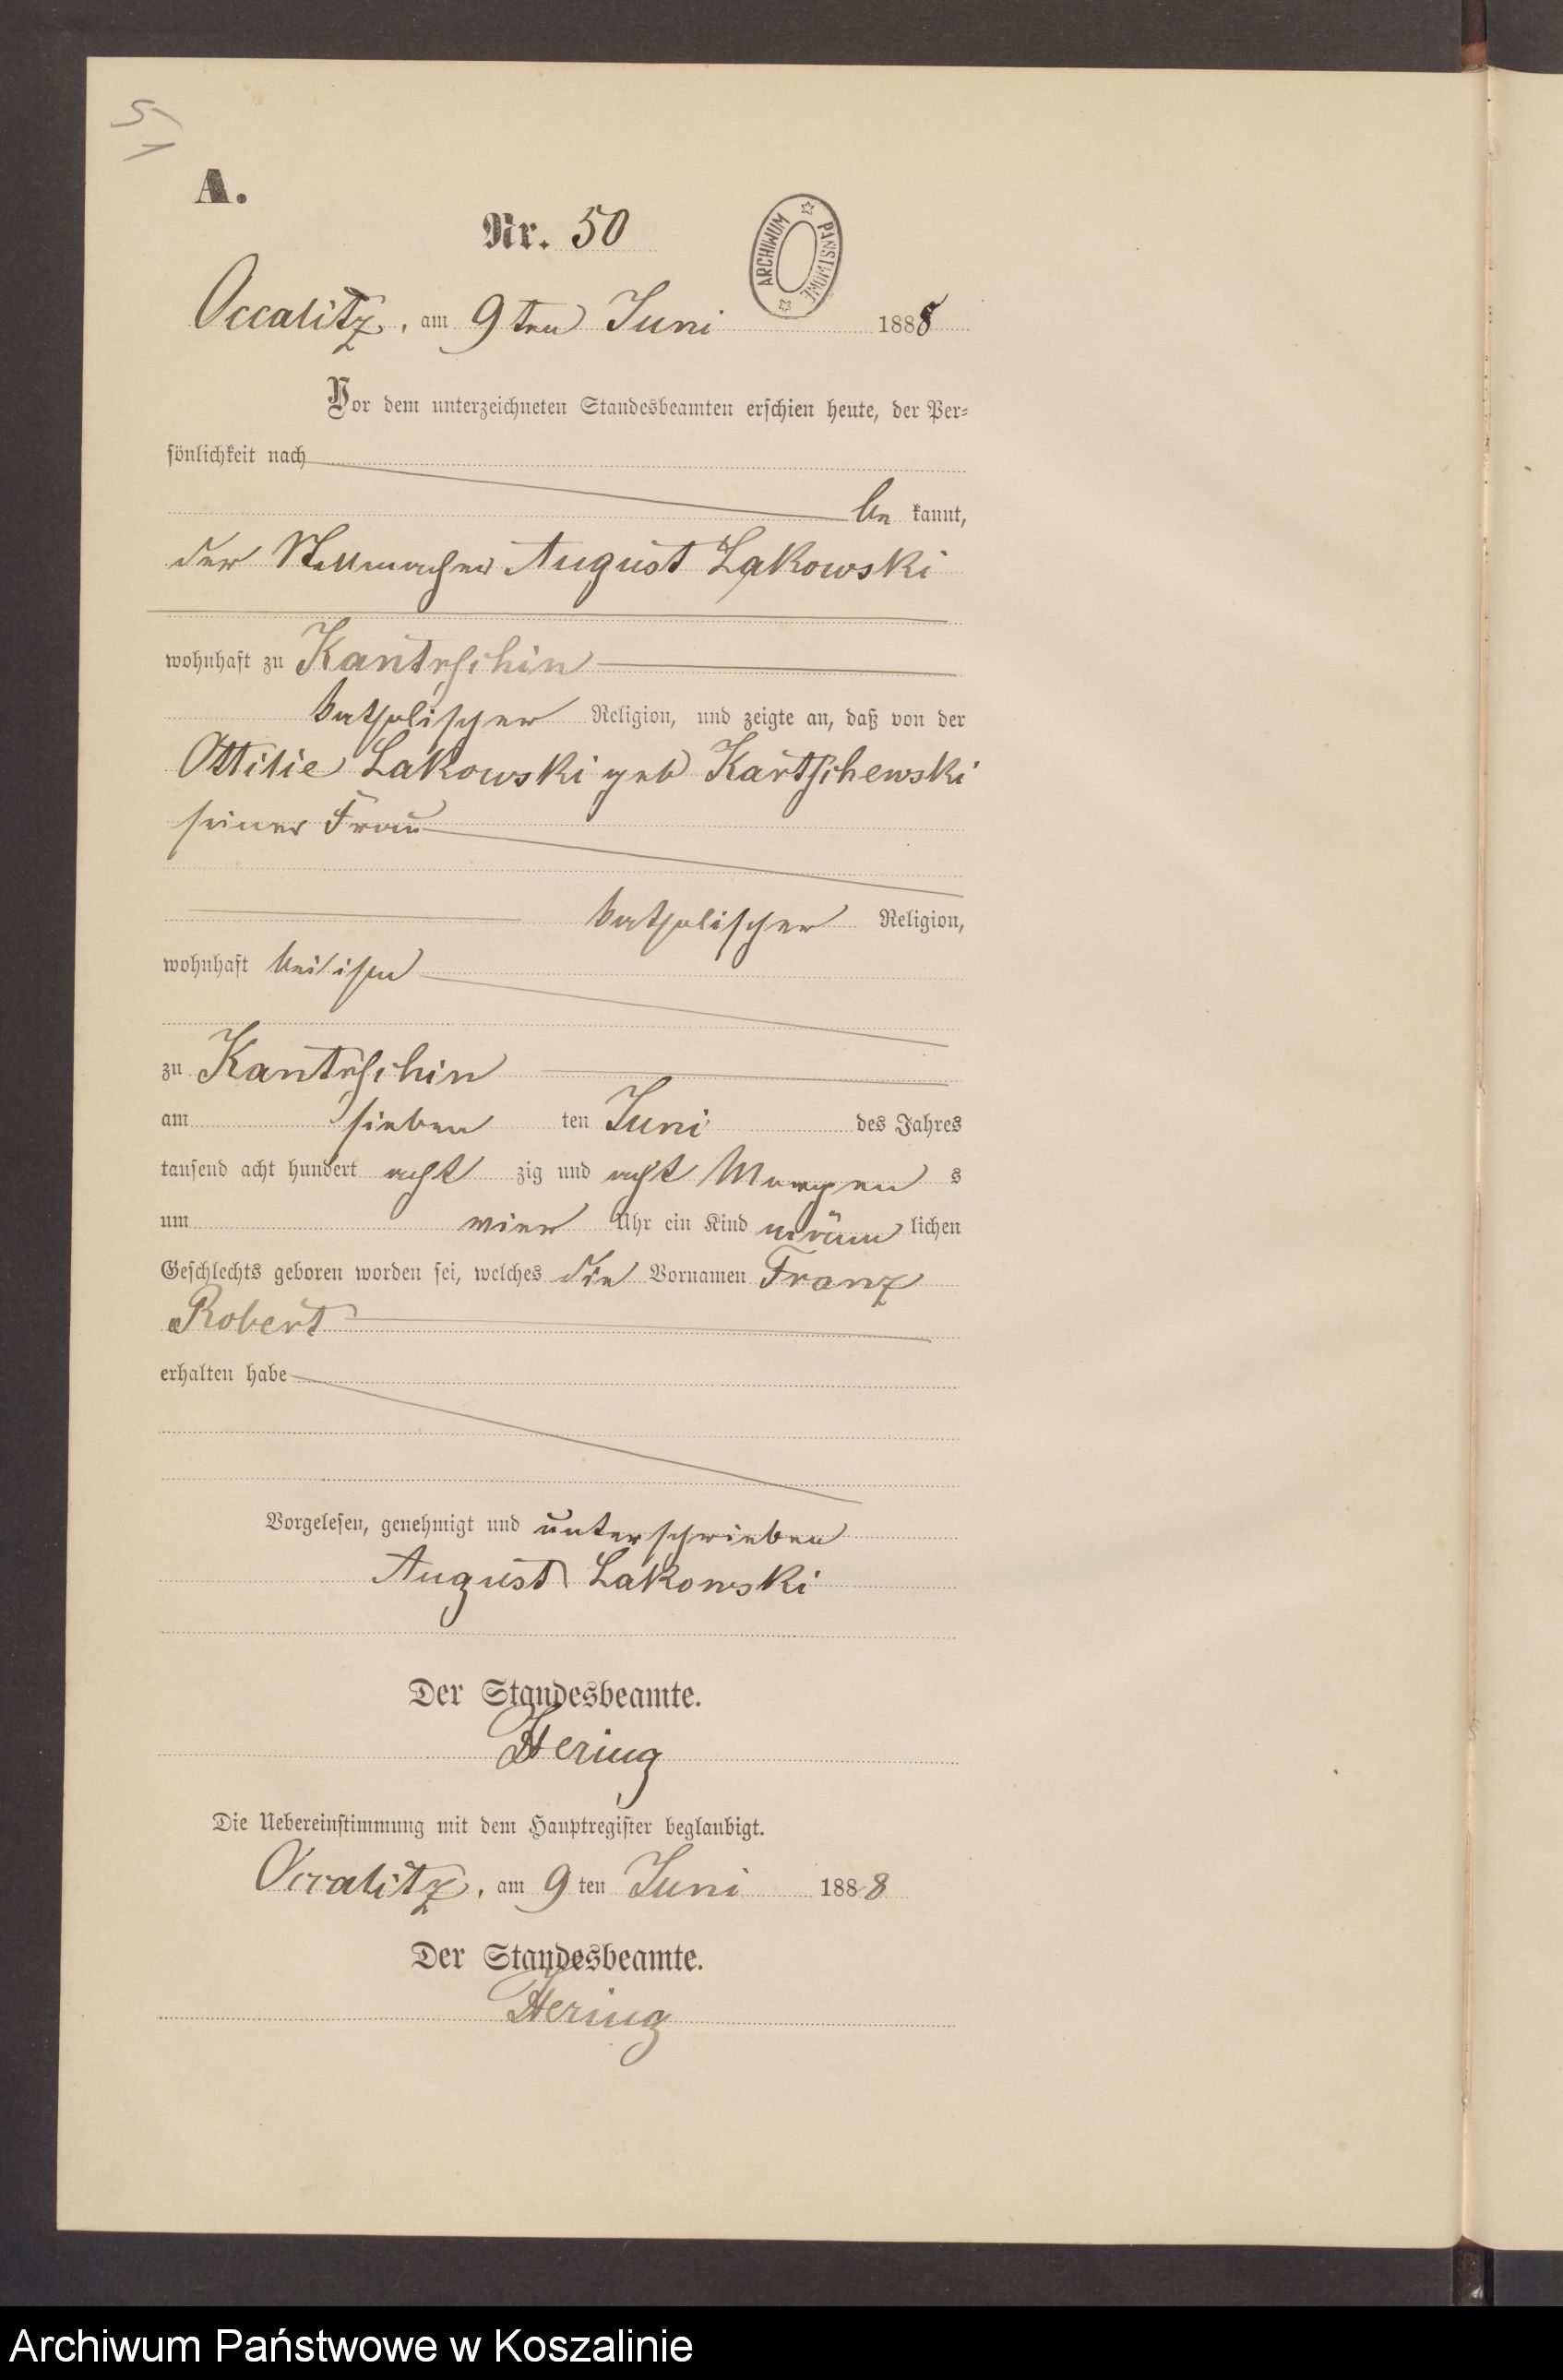 51
A.
Nr. 50
ARCHIWUM PAŃSTWOWE
Occalitz, am 9ten Juni 1888
Vor dem unterzeichneten Standesbeamten erschien heute, der Per-
sönlichkeit nach
be kannt,
der Stellmacher August Lakowski
wohnhaft zu Kantrschin
katholischer Religion, und zeigte an, daß von der
Ottilie Lakowski geb Kartschewski
seiner Frau
katholischer Religion,
wohnhaft bei ihm
zu Kantrschin
am sieben ten Juni des Jahres
tausend acht hundert acht zig und acht Morgen s
um vier Uhr ein Kind männ lichen
Geschlechts geboren worden sei, welches die Vornamen Franz
Robert
erhalten habe
Vorgelesen, genehmigt und unterschrieben
August Lakowski
Der Standesbeamte.
Hering
Die Uebereinstimmung mit dem Hauptregister beglaubigt.
Occalitz, am 9 ten Juni 1888
Der Standesbeamte.
Hering
Archiwum Państwowe w Koszalinie